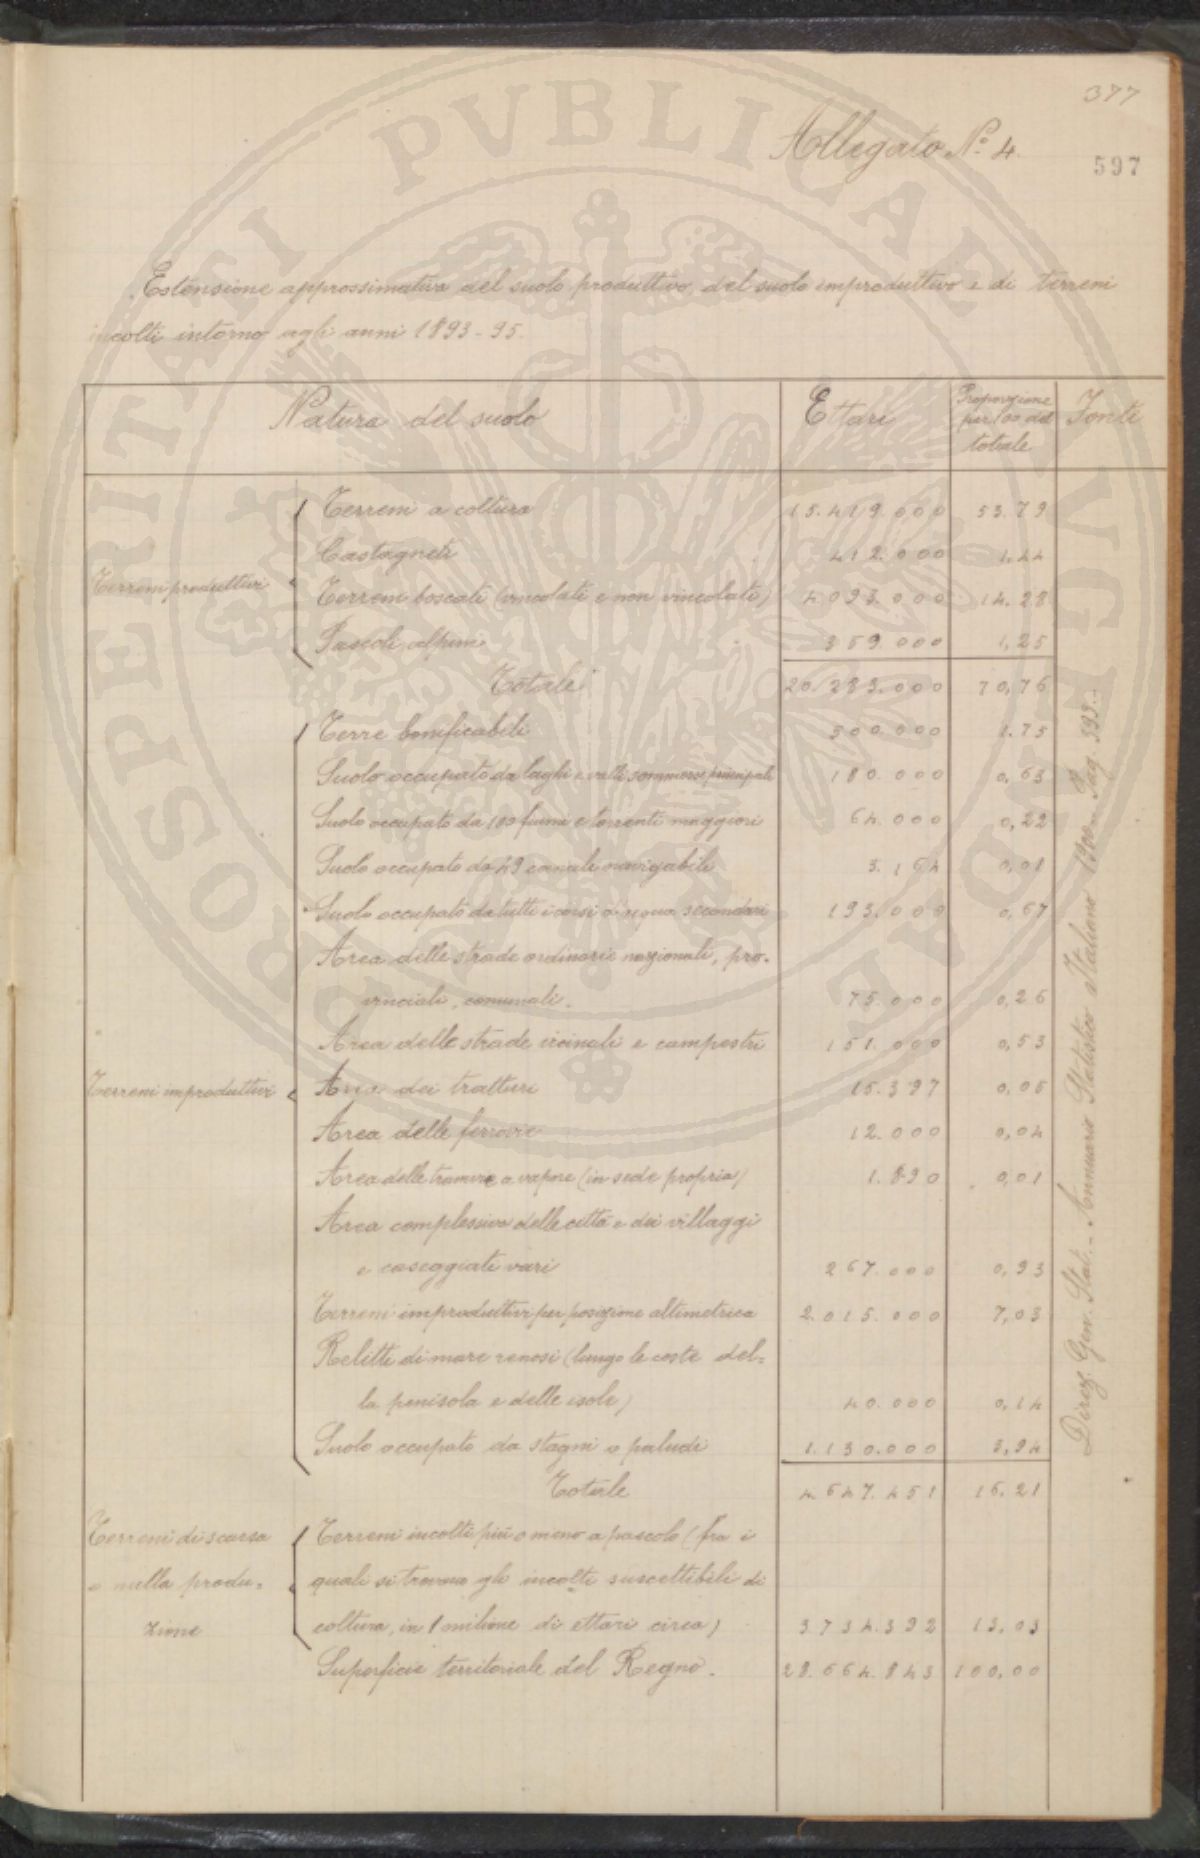 377
Allegato N.º 4.
597
Estensione approssimativa del suolo produttivo, del suolo improduttivo e di terreni
incolti intorno agli anni 1893-95.
Natura del suolo Ettari Proporzione per 100 del totale Fonti
Terreni produttivi
Terreni a coltura 15.419.000 53.79
Castagneti 412.000 1,44
Terreni boscati (vincolati e non vincolati) 4.093.000 14.28
Pascoli alpini 359.000 1,25
Totale 20.283.000 70,76
Terreni improduttivi
Terre bonificabili 500.000 1.75
Suolo occupato da laghi e valli sommerse principali 180.000 0,63
Suolo occupato da 100 fiumi e torrenti maggiori 64.000 0,22
Suolo occupato da 49 canali navigabili 3.164 0,01
Suolo occupato da tutti i corsi d'acqua secondari 193.000 0,67
Area delle strade ordinarie nazionali, pro-
vinciali, comunali. 75.000 0,26
Area delle strade vicinali e campestri 151.000 0,53
Area dei tratturi 15.397 0,05
Area delle ferrovie 12.000 0,04
Area delle tramvie a vapore (in sede propria) 1.890 0,01
Area complessiva delle città e dei villaggi
e caseggiati vari 267.000 0,93
Terreni improduttivi per posizione altimetrica 2.015.000 7,03
Relitti di mare renosi (lungo le coste del=
la penisola e delle isole) 40.000 0,14
Suolo occupato da stagni e paludi 1.130.000 3,94
Totale 4.647.451 16,21
Terreni di scarsa
o nulla produ=
zione
Terreni incolti più o meno a pascolo (fra i
quali si trovano gli incolti suscettibili di
coltura, in 1 milione di ettari circa) 3.734.392 13,03
Superficie territoriale del Regno. 28.664.843 100,00
Direz. Gen. Stat. - Annuario Statistico Italiano 1900 - Pag. 393.-
PROSPERITASI PVBLICAE AVGENDAE